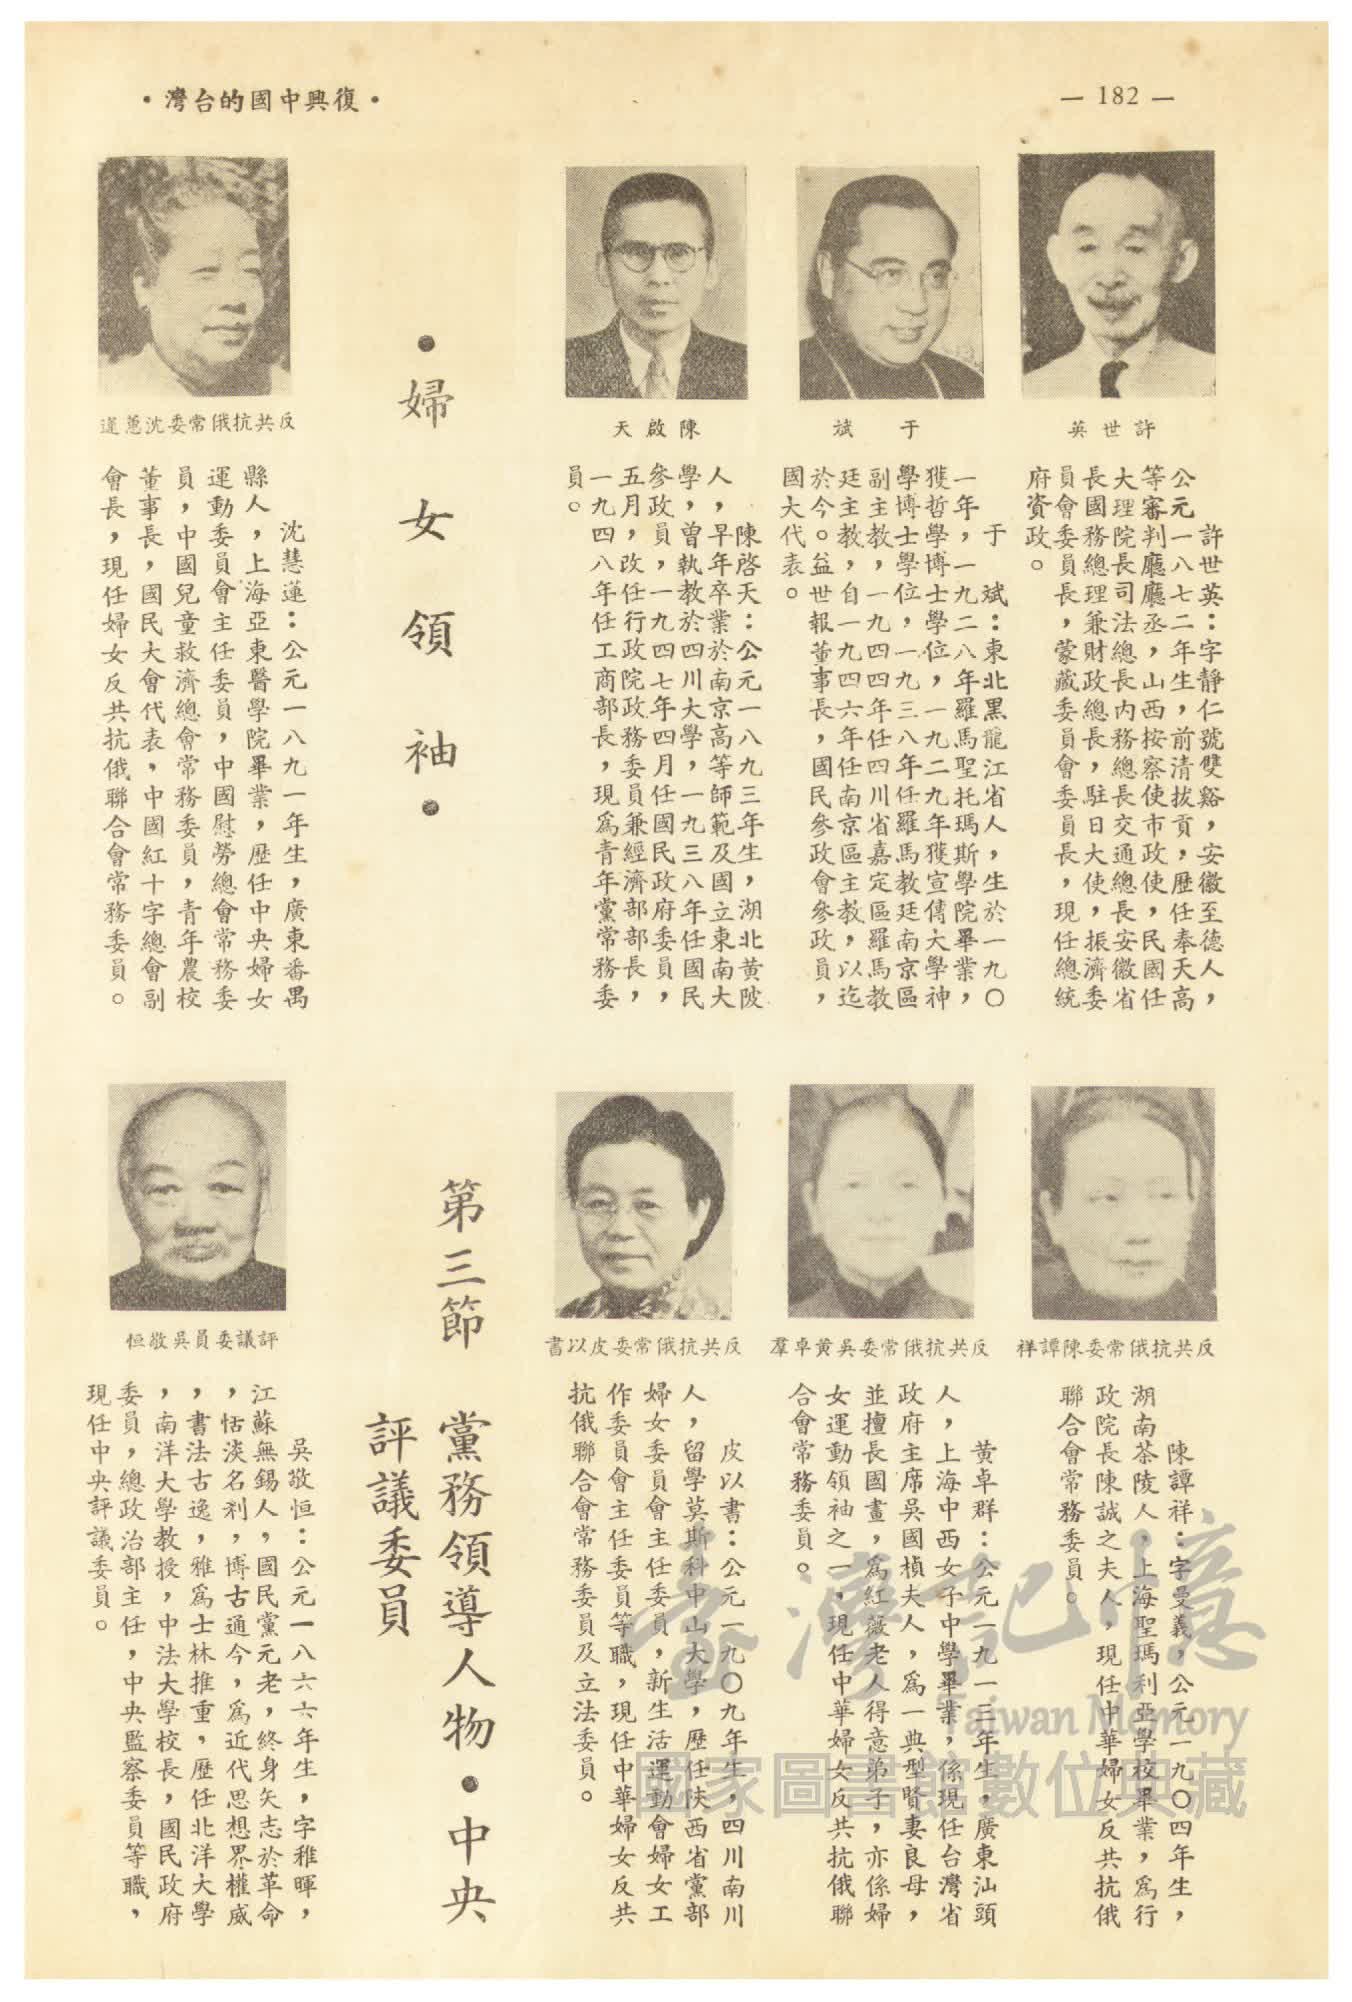 — 182 —
•復興中國的台灣•
許世英
許世英：字靜仁號雙谿，安徽至德人，
公元一八七二年生，前清拔貢，歷任奉天高
等審判廳廳丞，山西按察使市政使，民國任
大理院長司法總長內務總長交通總長安徽省
長國務總理兼財政總長，駐日大使，振濟委
員會委員長，蒙藏委員會委員長，現任總統
府資政。
于斌
于　斌：東北黑龍江省人，生於一九〇
一年，一九二八年羅馬聖托瑪斯學院畢業，
獲哲學博士學位，一九二九年獲宣傳大學神
學博士學位，一九三八年任羅馬教廷南京區
副主教，一九四四年任四川省嘉定區羅馬教
廷主教，自一九四六年任南京區主教，以迄
於今。益世報董事長，國民參政會參政員，
國大代表。
陳啟天
陳啓天：公元一八九三年生，湖北黃陂
人，早年卒業於南京高等師範及國立東南大
學，曾執教於四川大學，一九三八年任國民
參政員，一九四七年四月任國民政府委員，
五月，改任行政院政務委員兼經濟部部長，
一九四八年任工商部長，現爲青年黨常務委
員。
•婦女領袖•
反共抗俄常委沈蕙蓮
沈慧蓮：公元一八九一年生，廣東番禺
縣人，上海亞東醫學院畢業，歷任中央婦女
運動委員會主任委員，中國慰勞總會常務委
員，中國兒童救濟總會常務委員，青年農校
董事長，國民大會代表，中國紅十字總會副
會長，現任婦女反共抗俄聯合會常務委員。
反共抗俄常委陳譚祥
陳譚祥：字曼義，公元一九〇四年生，
湖南茶陵人，上海聖瑪利亞學校畢業，爲行
政院長陳誠之夫人，現任中華婦女反共抗俄
聯合會常務委員。
反共抗俄常委吳黃卓羣
黃卓群：公元一九一三年生，廣東汕頭
人，上海中西女子中學畢業，係現任台灣省
政府主席吳國楨夫人，爲一典型賢妻良母，
並擅長國畫，爲紅薇老人得意弟子，亦係婦
女運動領袖之一，現任中華婦女反共抗俄聯
合會常務委員。
反共抗俄常委皮以書
皮以書：公元一九〇九年生，四川南川
人，留學莫斯科中山大學，歷任陝西省黨部
婦女委員會主任委員，新生活運動會婦女工
作委員會主任委員等職，現任中華婦女反共
抗俄聯合會常務委員及立法委員。
第三節　黨務領導人物•中央
評議委員
評議委員吳敬恒
吳敬恒：公元一八六六年生，字稚暉，
江蘇無錫人，國民黨元老，終身矢志於革命
，恬淡名利，博古通今，爲近代思想界權威
，書法古逸，雅爲士林推重，歷任北洋大學
，南洋大學教授，中法大學校長，國民政府
委員，總政治部主任，中央監察委員等職，
現任中央評議委員。
臺灣記憶
Taiwan Memory
國家圖書館數位典藏